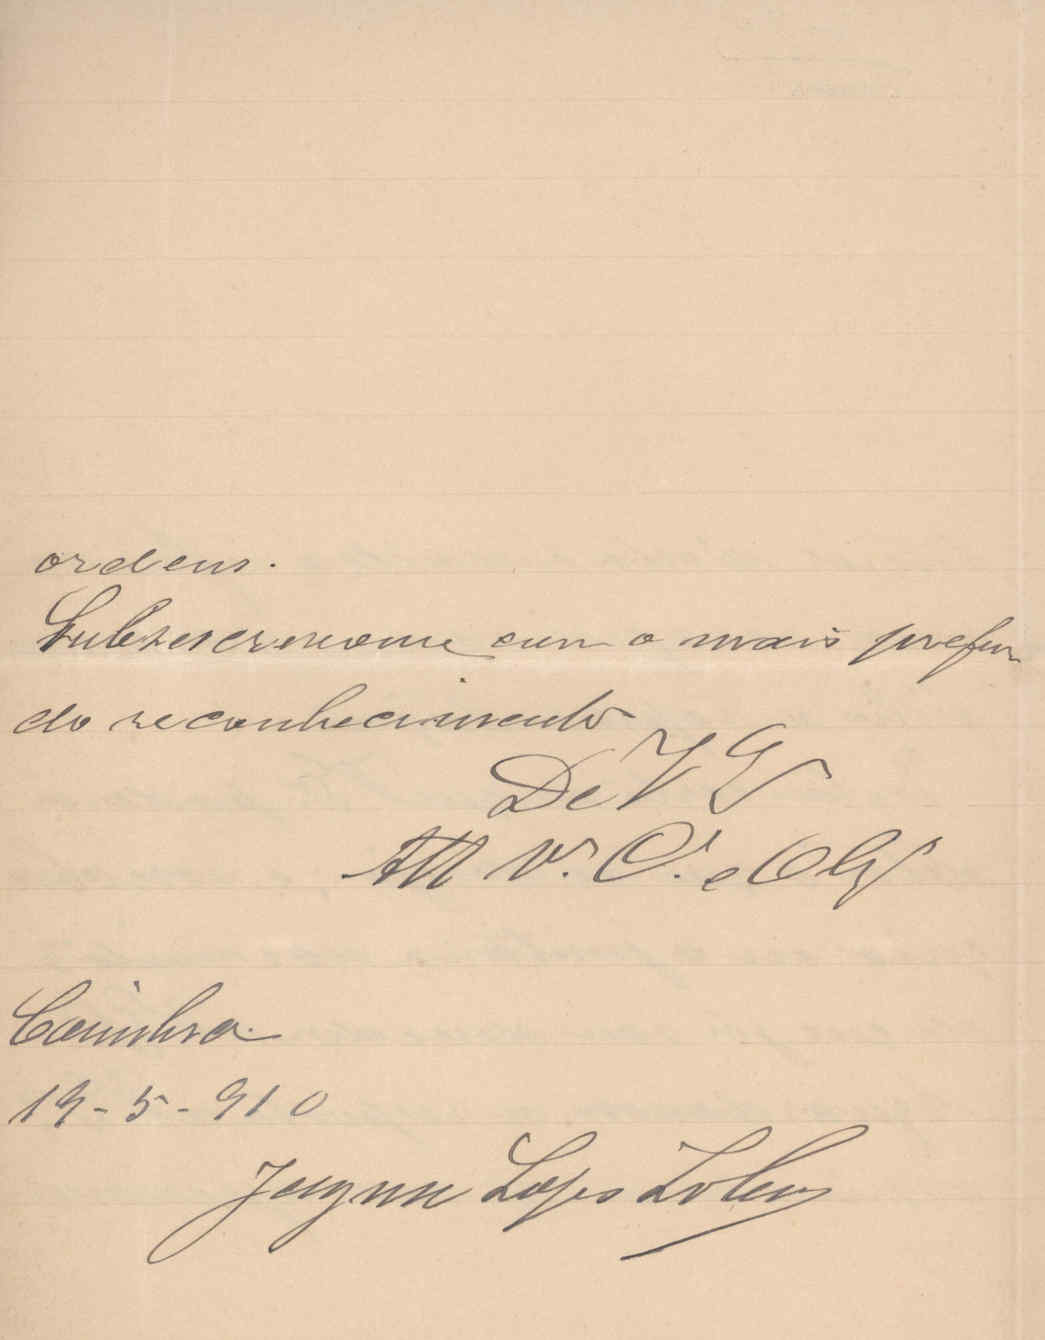 ordens.
Subescrevome com o mais profun
do reconhecimento
De V E
Att V.ᵒʳ C.ᵒ e Obg.ᵒ
Coimbra
19-5-910
Joaquim Lopes